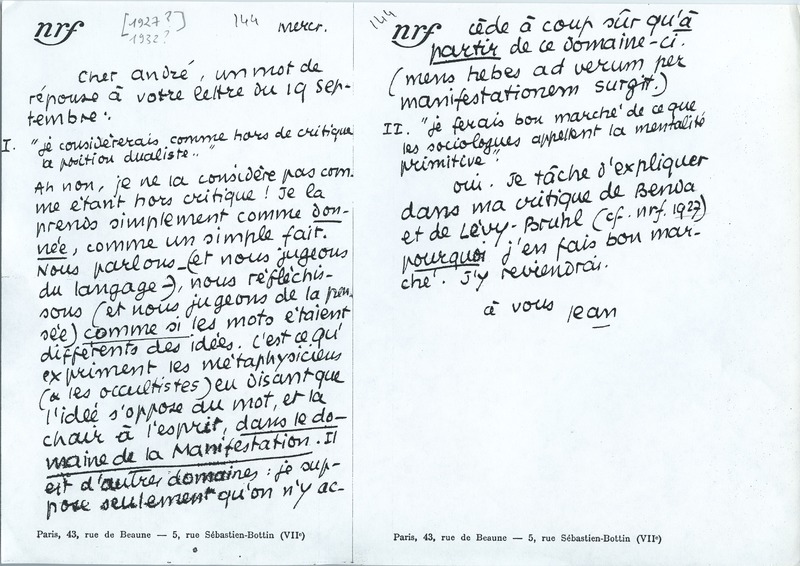 nrf
[1927?]
1932?
144
mercr.
Cher André, un mot de
réponse à votre lettre du 19 Sep-
tembre :
I. "je considèrerais comme hors de critique
la position dualiste.."
Ah non, je ne la considère pas com-
me étant hors critique ! Je la
prends simplement comme don-
née, comme un simple fait.
Nous parlons (et nous jugeons
du langage -), nous réfléchis-
sons (et nous jugeons de la pen-
sée) comme si les mots étaient
différents des idées. C'est ce qu'
expriment les métaphysiciens
(& les occultistes) en disant que
l'idée s'oppose au mot, et la
chair à l'esprit, dans le do-
maine de la Manifestation. Il
est d'autres domaines : je sup-
pose seulement qu'on n'y ac-
Paris, 43, rue de Beaune — 5, rue Sébastien-Bottin (VIIe)
144
nrf
cède à coup sûr qu'à
partir de ce domaine-ci.
(mens hebes ad verum per
manifestationem surgit.)
II. "je ferais bon marché de ce que
les sociologues appellent la mentalité
primitive"
oui. Je tâche d'expliquer
dans ma critique de Benda
et de Lévy-Bruhl (cf. nrf. 1927)
pourquoi j'en fais bon mar-
ché. J'y reviendrai.
à vous Jean
Paris, 43, rue de Beaune — 5, rue Sébastien-Bottin (VIIe)